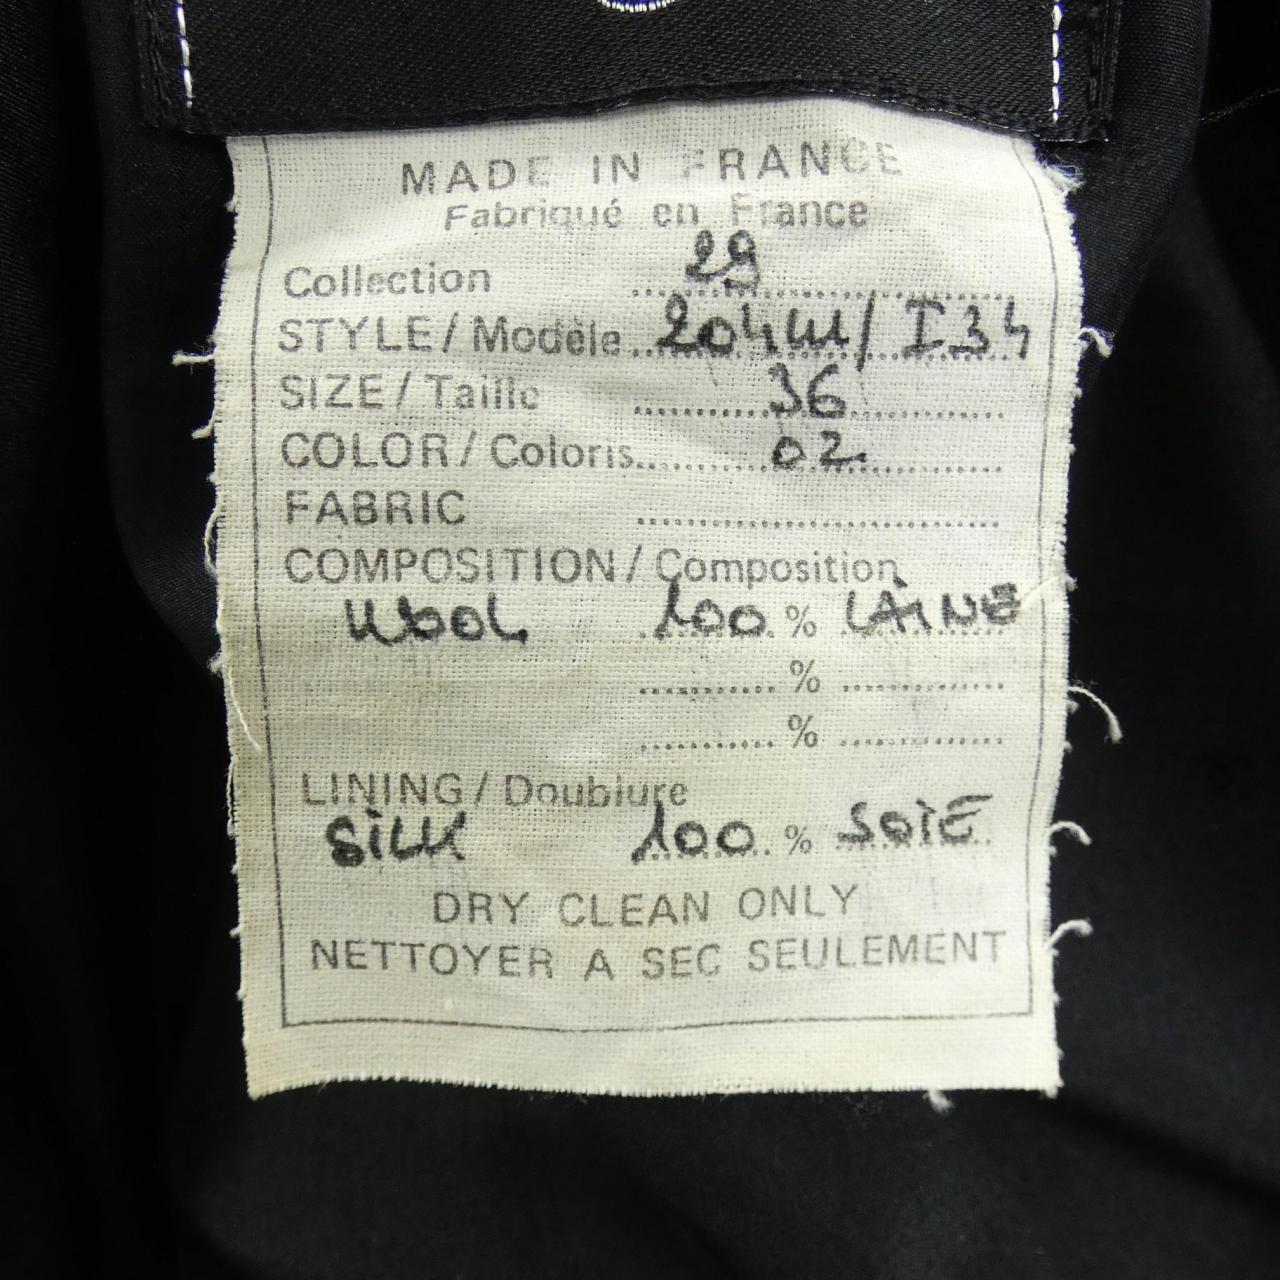 MADE IN FRANCE
Fabriqué en France
Collection 29
STYLE / Modèle 204W / I34
SIZE / Taille 36
COLOR / Coloris 02
FABRIC
COMPOSITION / Composition
WOOL 100 % LAINE
%
%
LINING / Doublure
SILK 100 % SOIE
DRY CLEAN ONLY
NETTOYER A SEC SEULEMENT